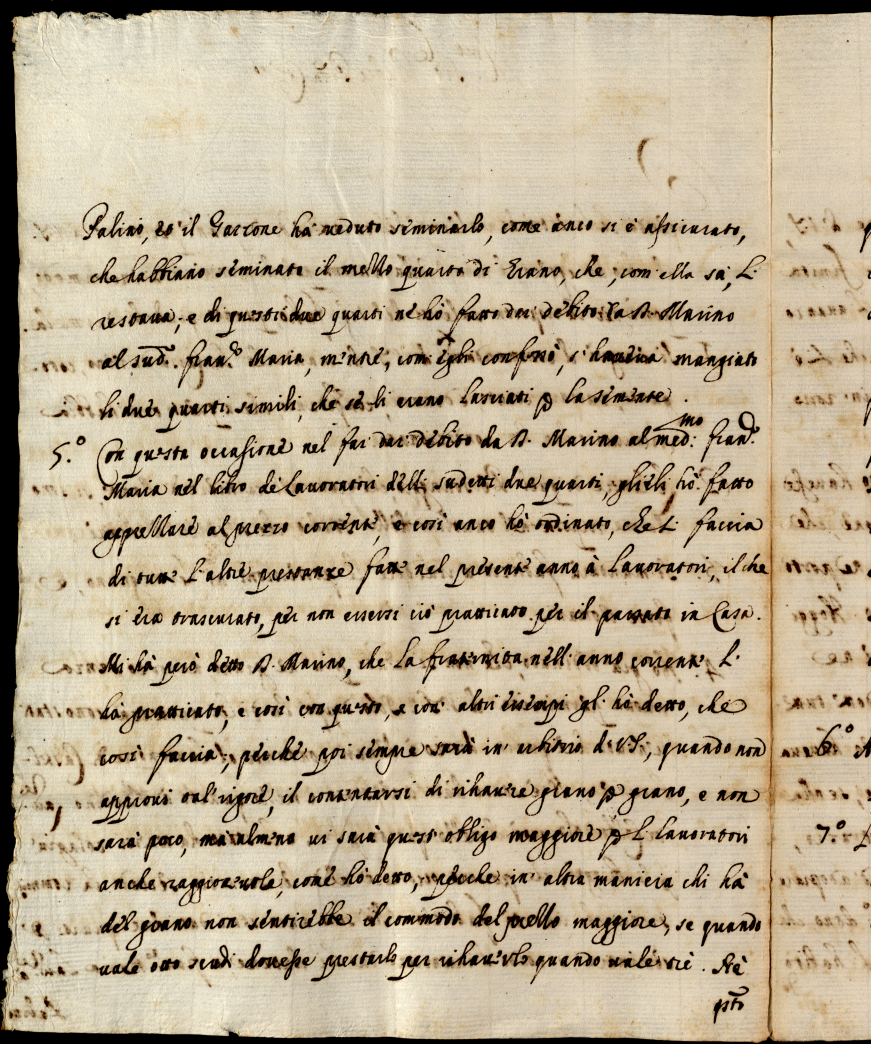 Palino, et il Garzone hà veduto seminarlo, come anco si è assicurato,
che habbiano seminato il mezzo quarto di Grano, che, com ella sà, L.
restava; e di questi due quarti nè hò fatto dar debito da D. Marino
al sud.º Fran.º Maria, mentre, com'egli confessò, s'haveva mangiato
li due quarti simili, che sè li erano lasciati p la semente.
5.º Con questa occasione nel far dar debito da D. Marino al med.mo Fran.º
Maria nel libro de Lavoratori delli sudetti due quarti, glieli hò fatto
appezzare al prezzo corrente, e così anco hò ordinato, che L. faccia
di tutte l'altre prestanze fatte nel presente anno à Lavoratori, il che
si era trascurato, per non essersi ciò pratticato per il passato in Casa.
Mi hà però detto D. Marino, che la fraternita nell'anno corrente L.
hà pratticato, e così con questo, e con altri esempi gl'hò detto, che
così faccia; perche poi sempre sarà in arbitrio di VS., quando non
approvi tal rigore, il contentarsi di rihavere grano p grano, e non
sarà poco, mà almeno vi sarà quest'obligo maggiore p L Lavoratori
anche raggionevole, come hò detto, perche in altra maniera chi hà
del grano non sentirebbe il commodo del prezzo maggiore, se quando
vale otto scudi dovesse prestarlo per rihaverlo quando vale trè. Nè
psto
6.º
7.º